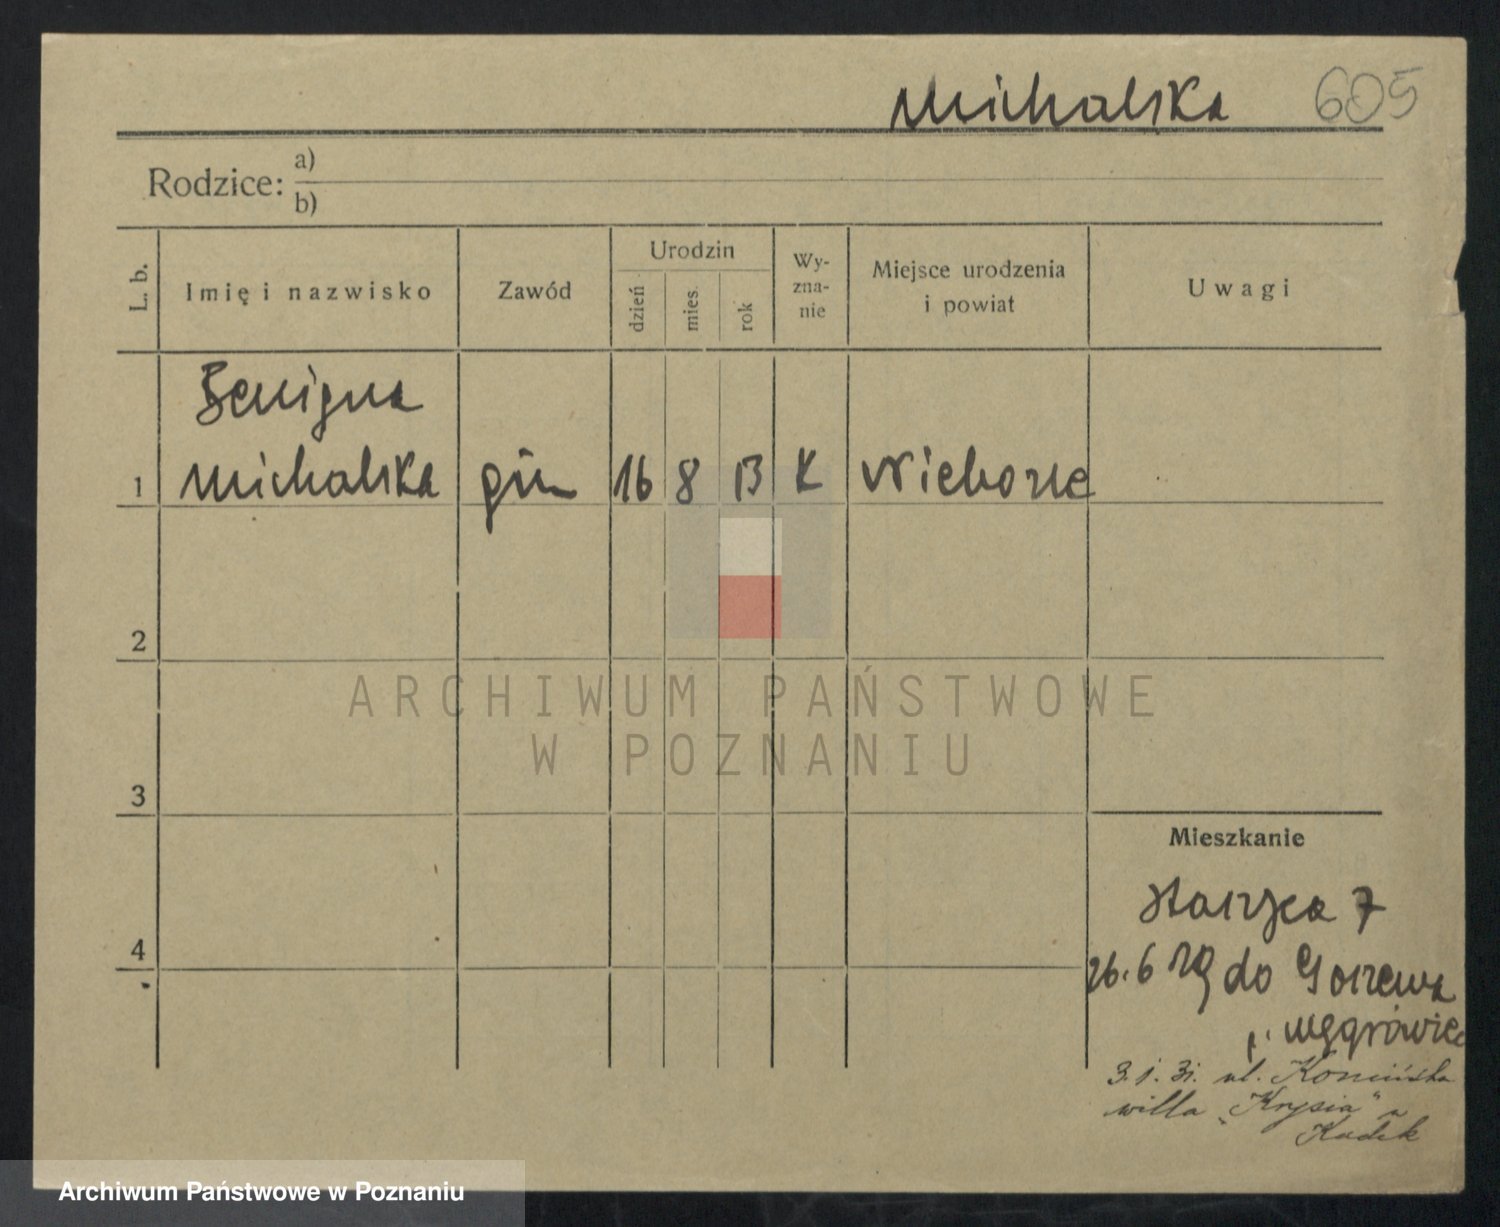 Michalska 605
Rodzice: a)
b)
L. b. Imię i nazwisko Zawód Urodzin dzień mies. rok Wy-zna-nie Miejsce urodzenia i powiat Uwagi
Benigna
1 Michalska gim 16 8 13 K
2
3
ARCHIWUM PAŃSTWOWE
W POZNANIU
Mieszkanie
4
7
26.6 29 do Gorzewa
p. Wągrówiec
3.1.31. ul. Konińska
willa „Krysia" u
Archiwum Państwowe w Poznaniu